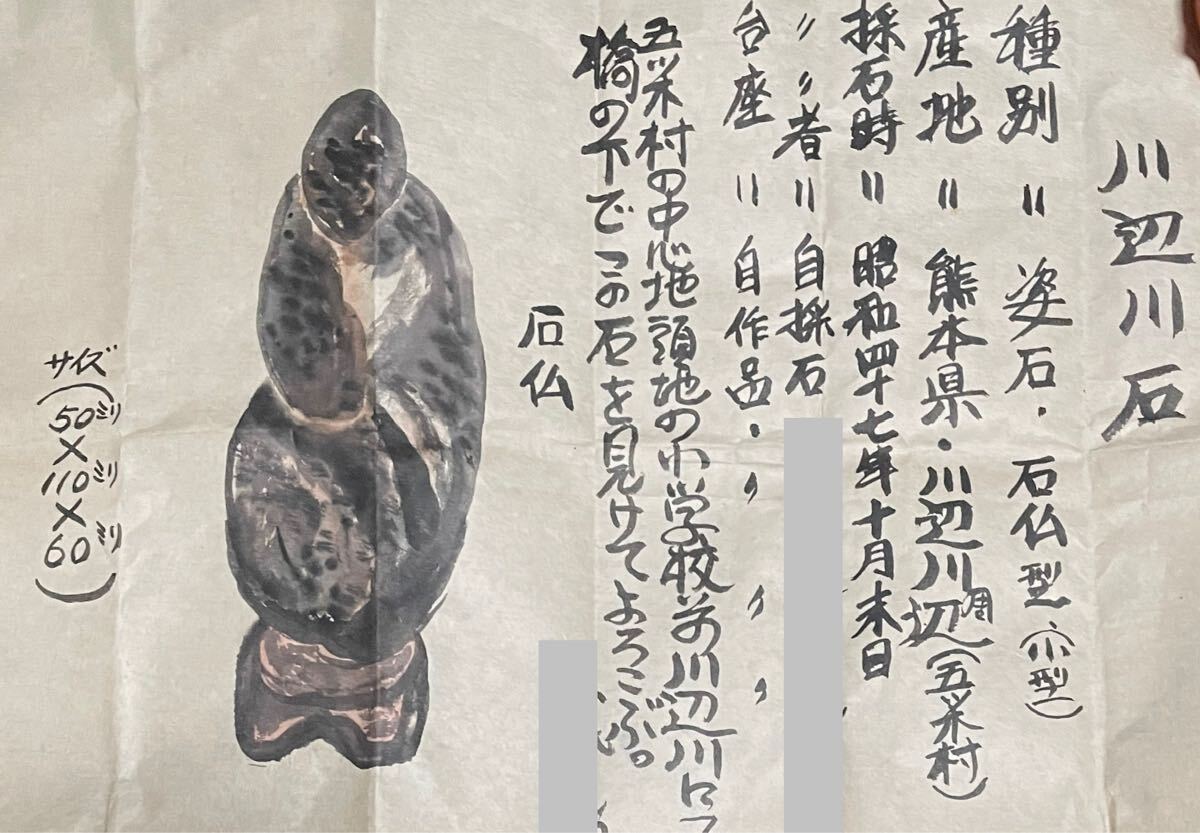 川辺川石
種別〃姿石・石仏型(小型)
産地〃熊本県・川辺川周辺(五ツ木村)
採石時〃昭和四十七年十月末日
〃〃者〃自採石
台座〃自作品・〃〃〃
五ツ木村の中心地頭地の小学校前川辺川にて
橋の下でこの石を見けてよろこぶ。
石仏
サイズ
(50ミリ
×
110ミリ
×
60ミリ)